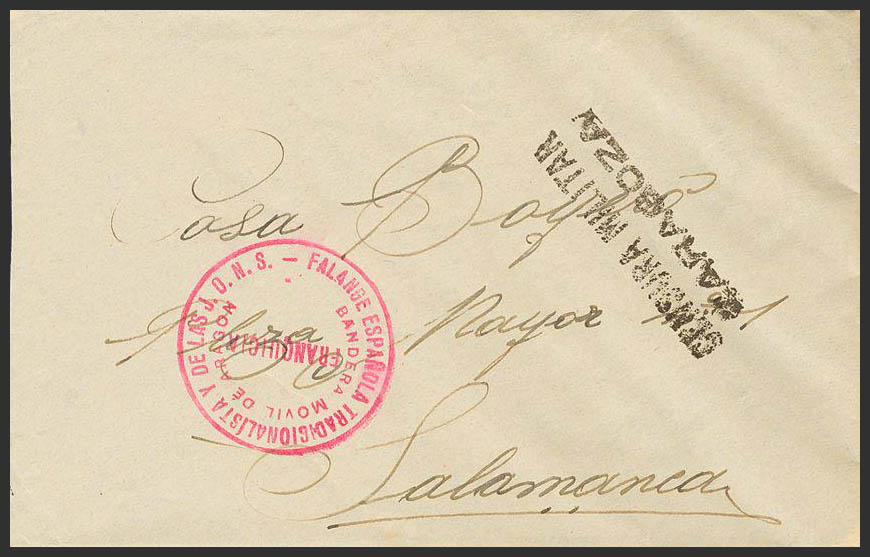 Casa
Plaza Mayor nº 1
Salamanca
CENSURA MILITAR
ZARAGOZA
FALANGE ESPAÑOLA TRADICIONALISTA Y DE LAS J.O.N.S. —
BANDERA MOVIL DE ARAGON
FRANQUICIA